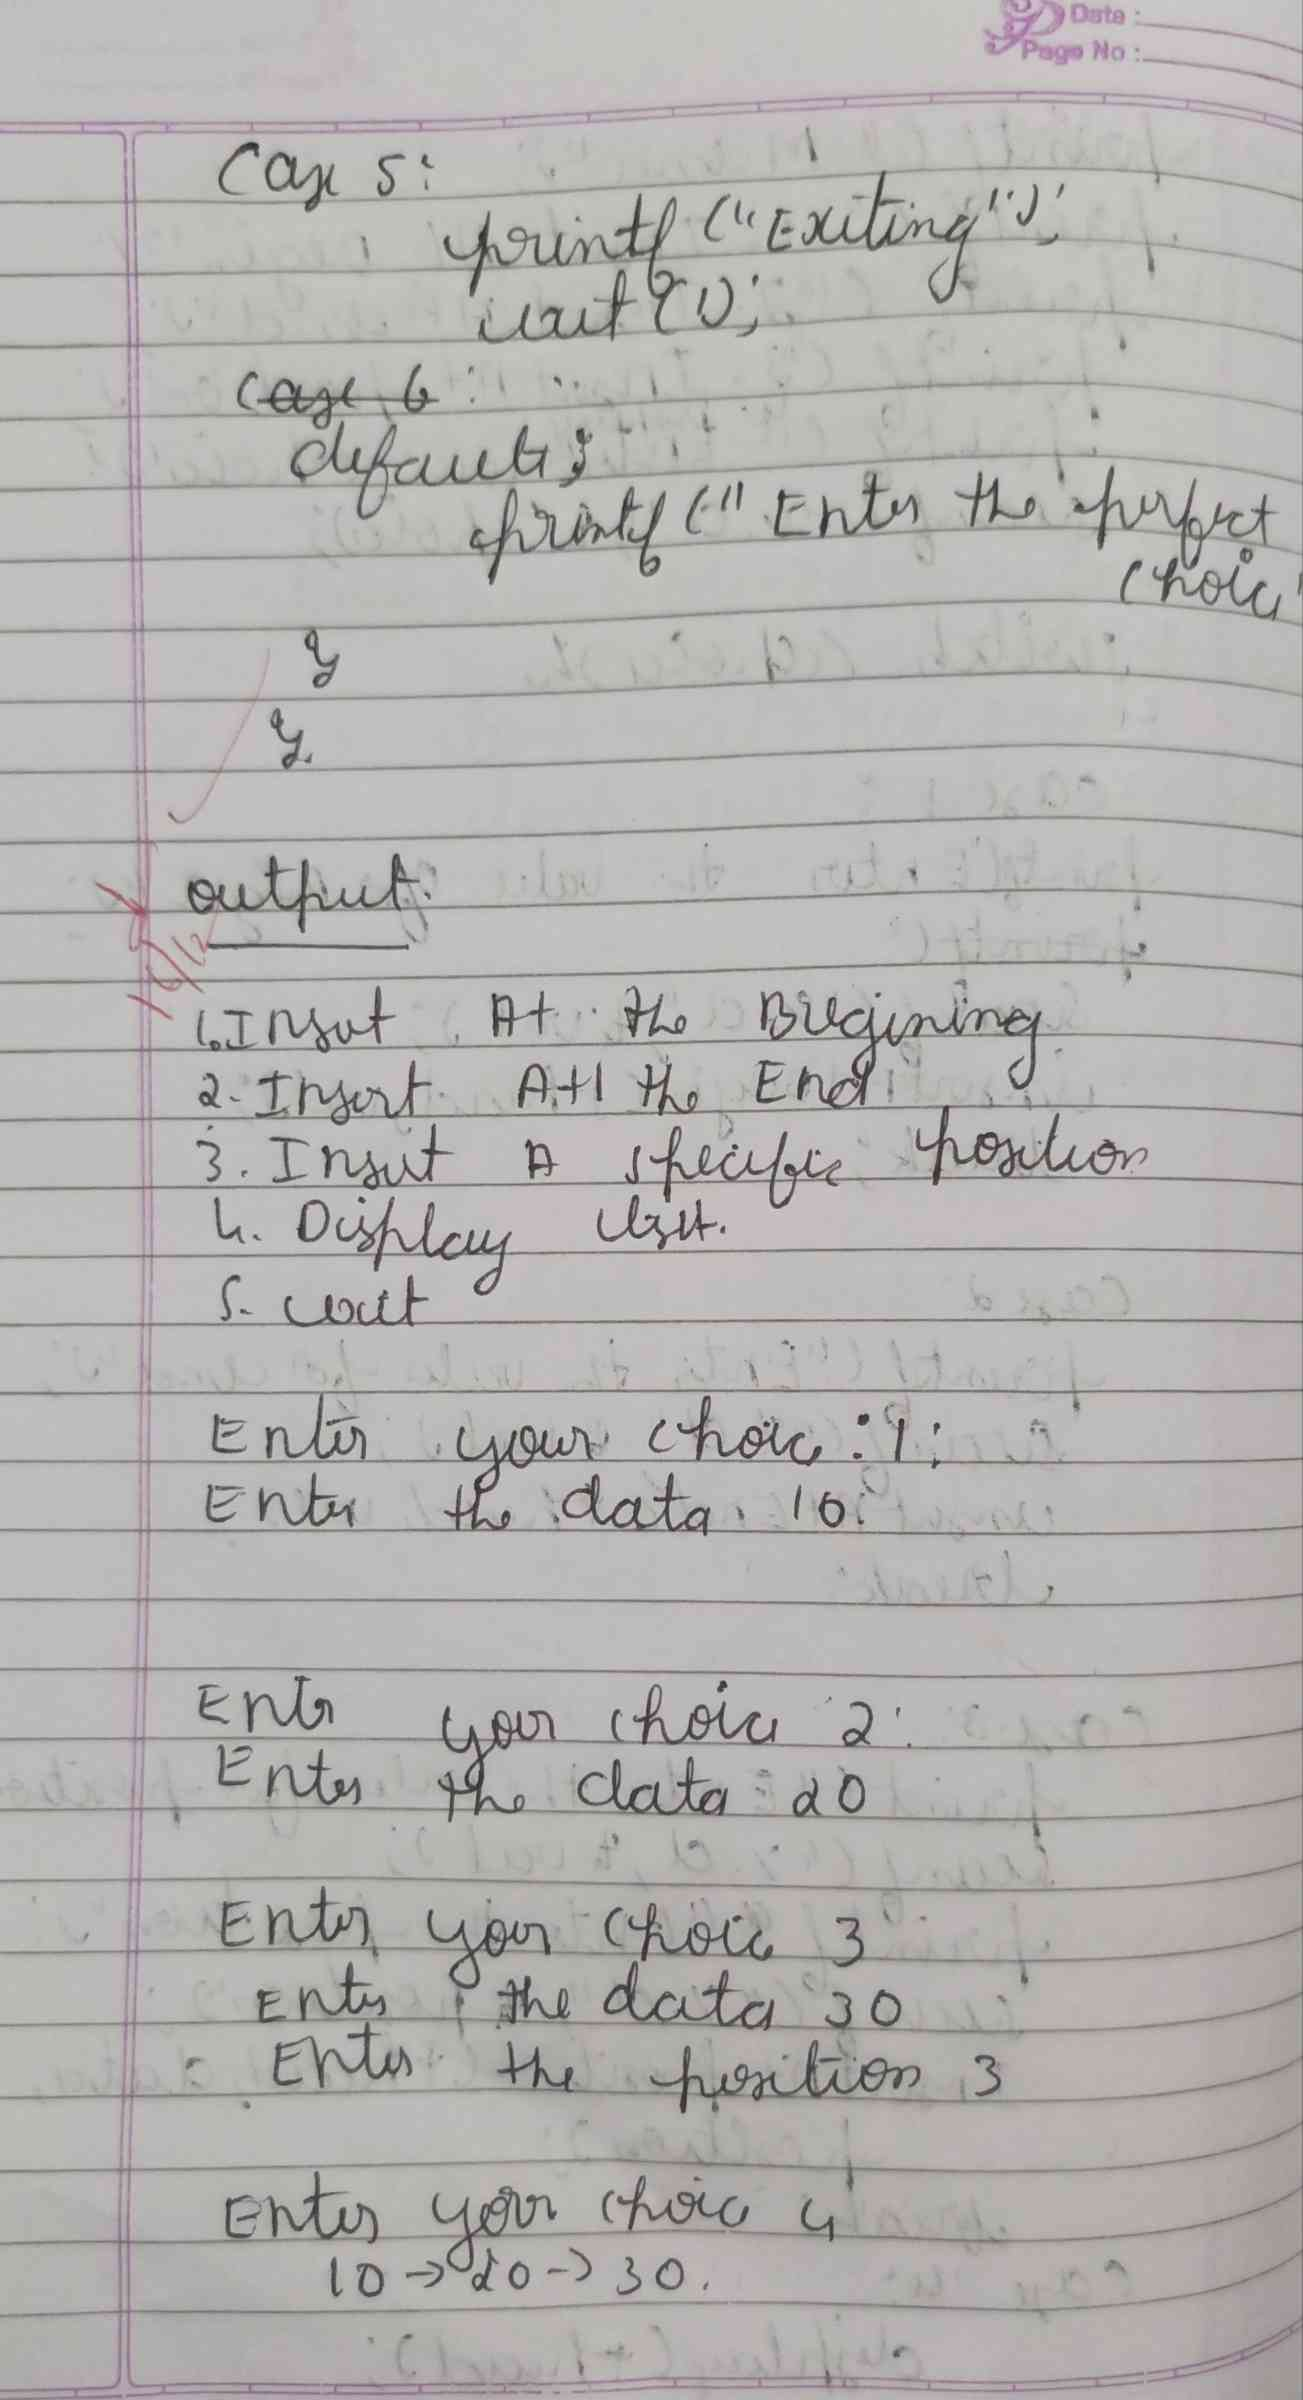 Date :
Page No :
Case 5:
printf ("Exiting");
exit (1);
case 6 :
default :
printf (" Enter the perfect
choice"
}
}
output.
1. Insert At the Biegining
2. Insert At the End
3. Insert A specific position
4. Display list.
5. exit
Enter your choice : 1 :
Enter the data 10:
Enter your choice 2:
Enter the data 20
Enter your choice 3
Enter the data 30
Enter the position 3
Enter your choice 4
10 → 20 → 30.